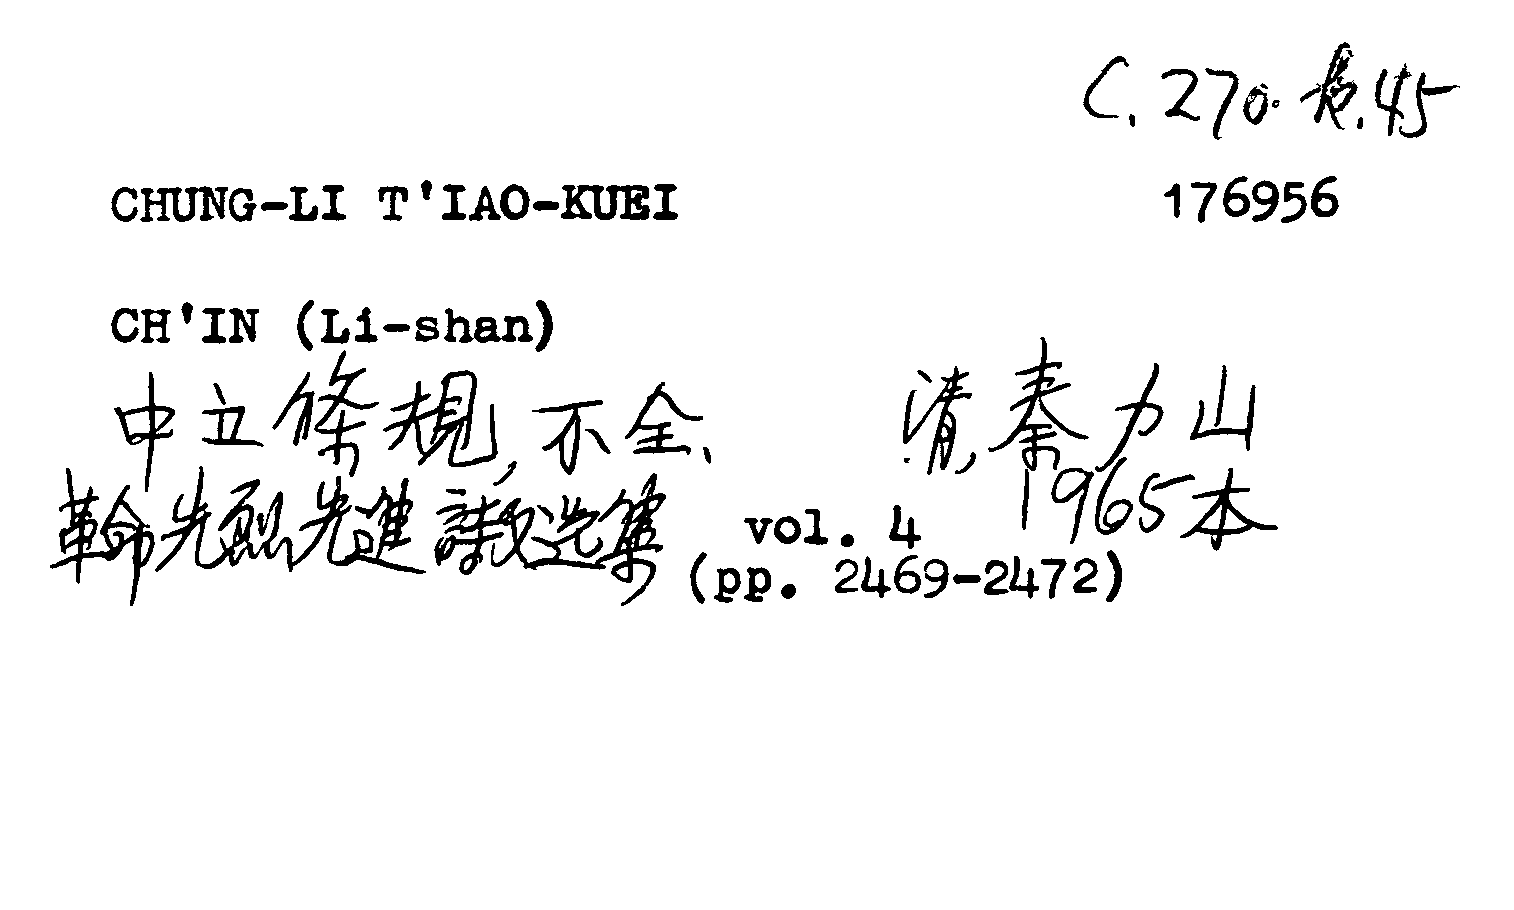 C. 270. .45
CHUNG-LI T'IAO-KUEI 176956
CH'IN (Li-shan)
中立條規, 不全、 清, 秦力山
革命先烈先進詩文選集 vol. 4 1965本
(pp. 2469-2472)